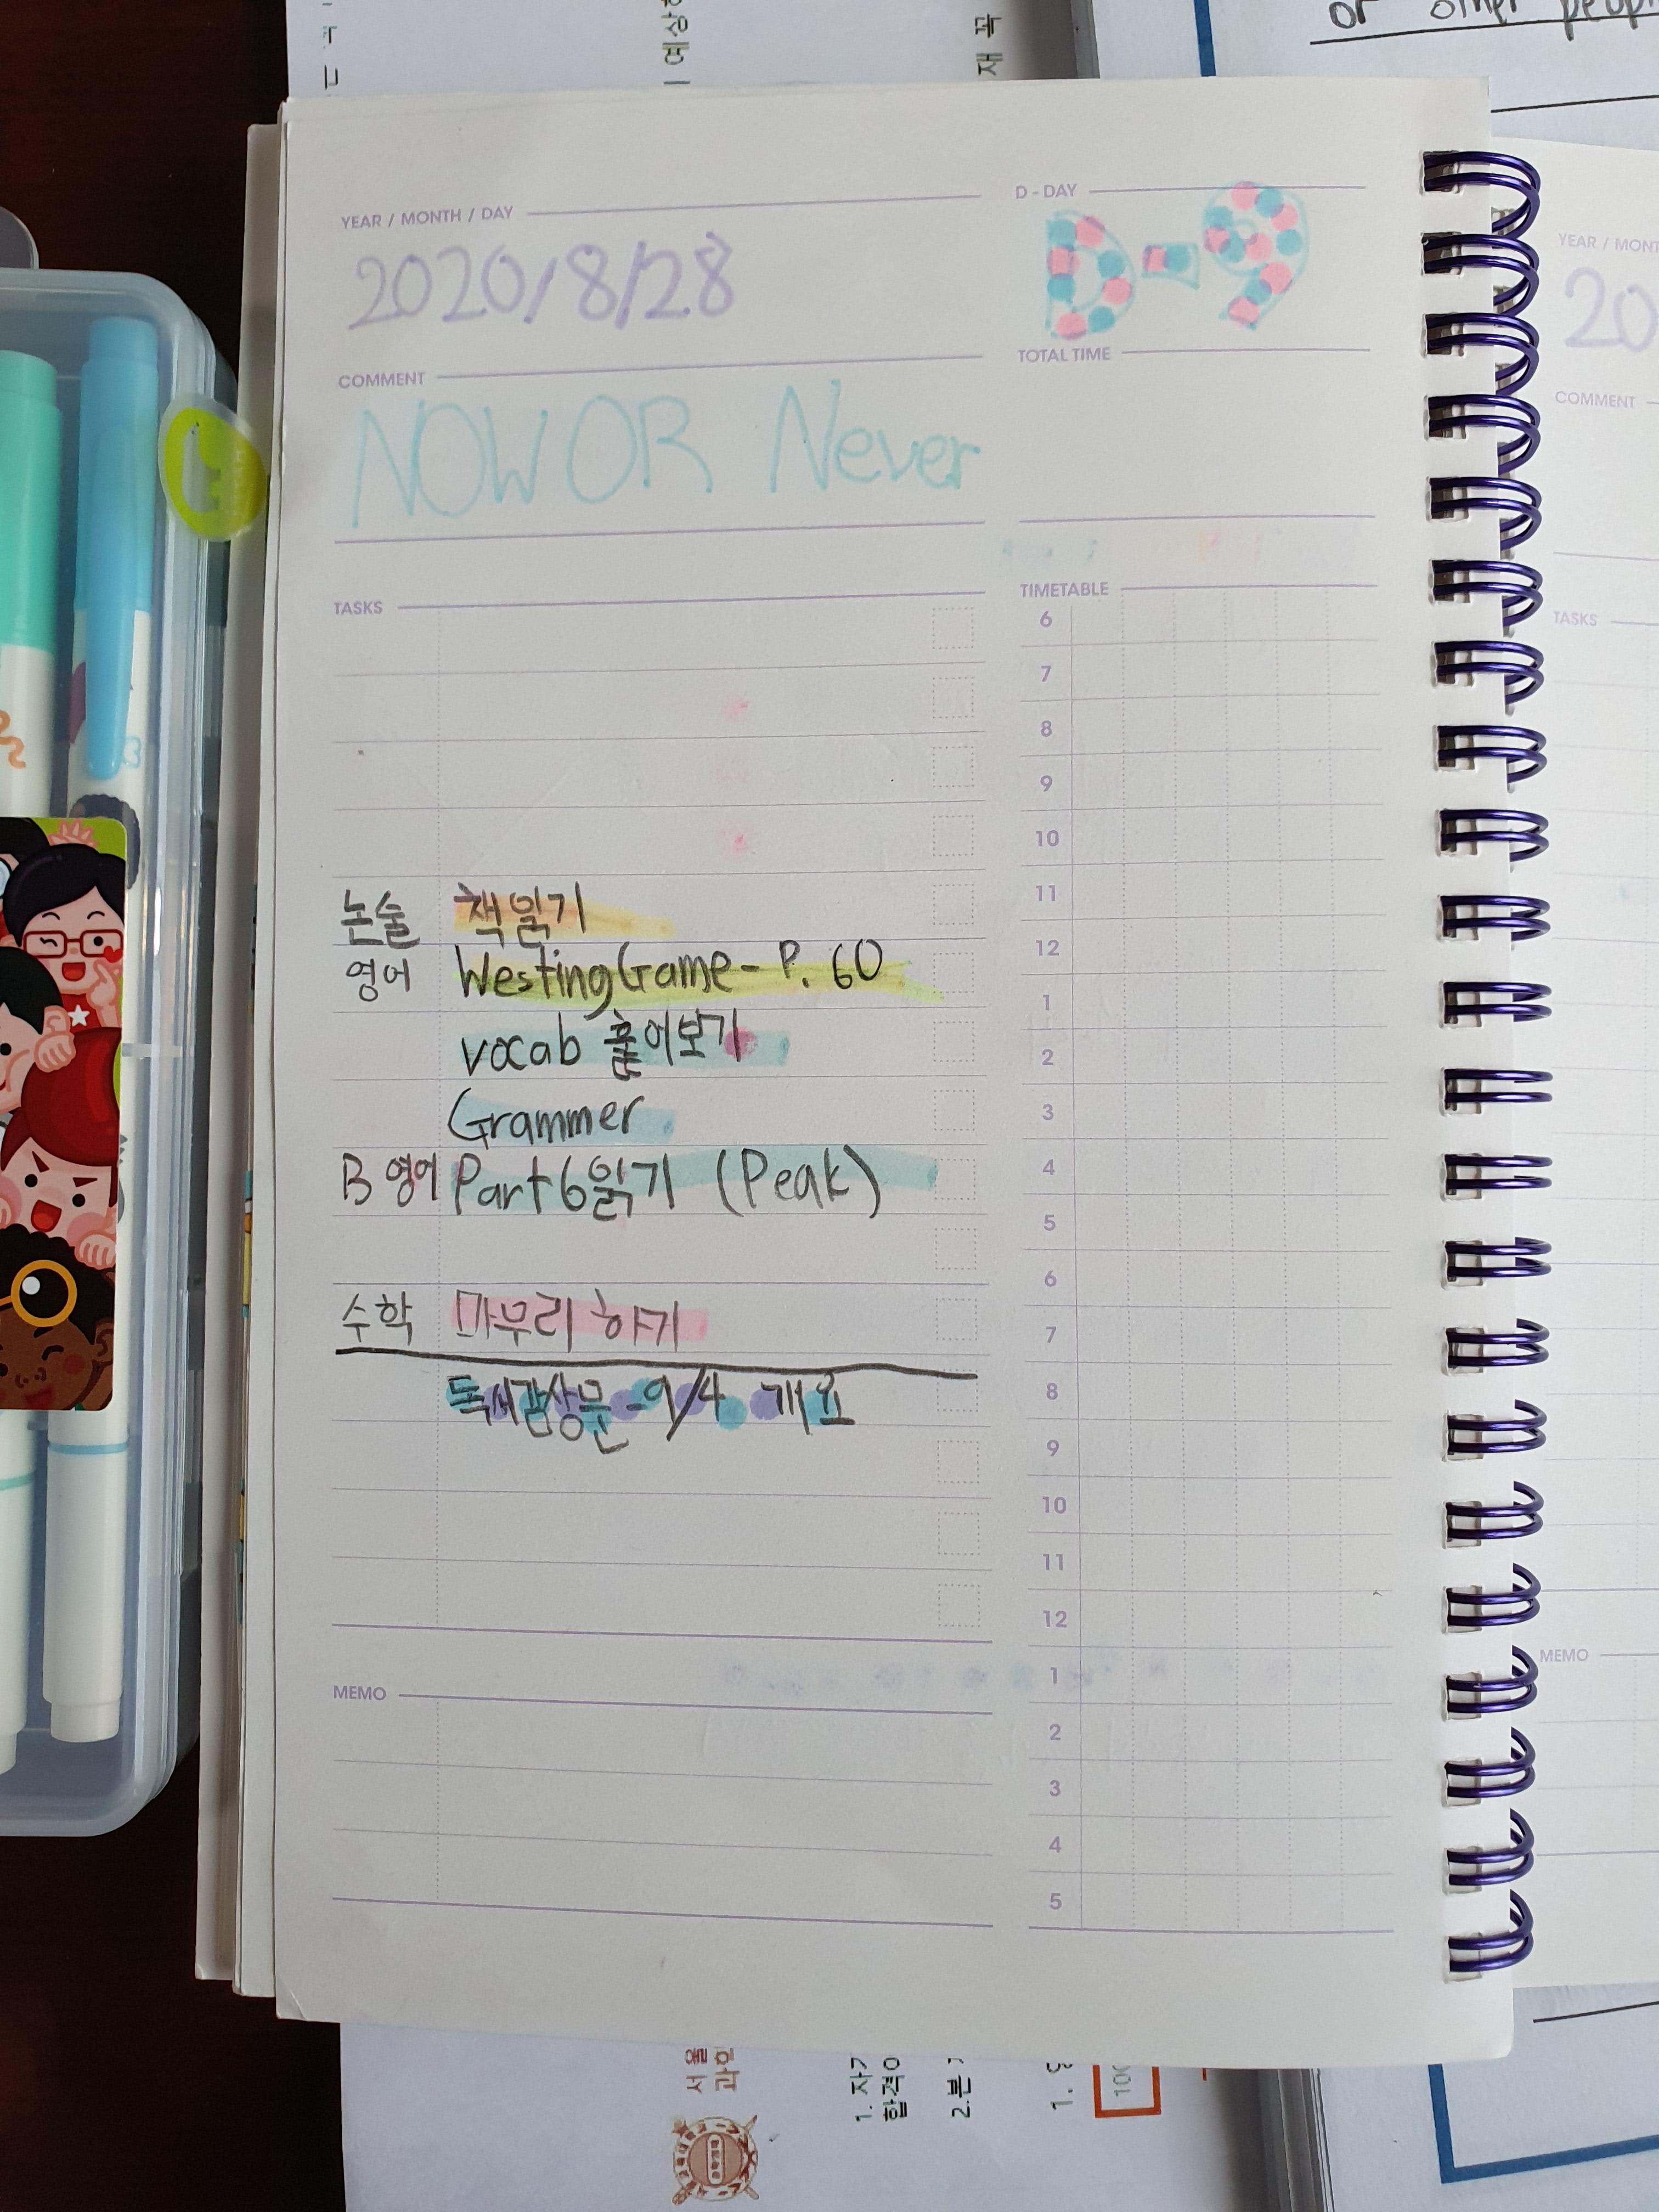 or other
예상
재 꼭
YEAR / MONTH / DAY
2020/8/28
D - DAY
D-9
COMMENT
NOW OR Never
TOTAL TIME
TASKS
TIMETABLE
6
7
8
9
10
논술 책읽기
11
영어 Westing Game - P. 60
12
1
vocab 훑어보기
2
Grammer
3
B 영어 Part 6 읽기 (Peak)
4
5
6
수학 마무리 하기
7
독서감상문 - 9/4 개요
8
9
10
11
12
1
MEMO
2
3
4
5
YEAR /
20
COMMENT
TASKS
MEMO
서울
1.
합격
2.본
1.
100